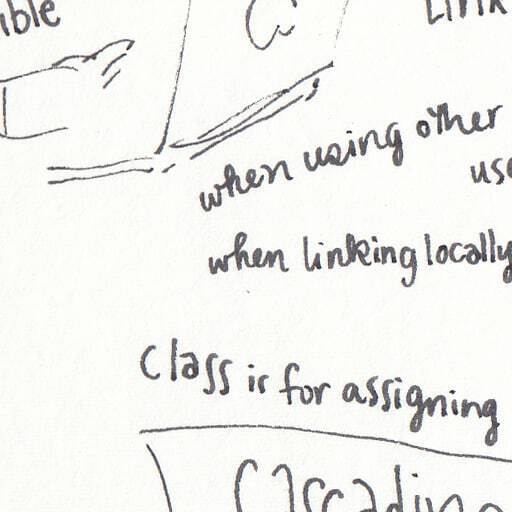 ible
Link
when using other
use
when linking locally
Class is for assigning
Cascading